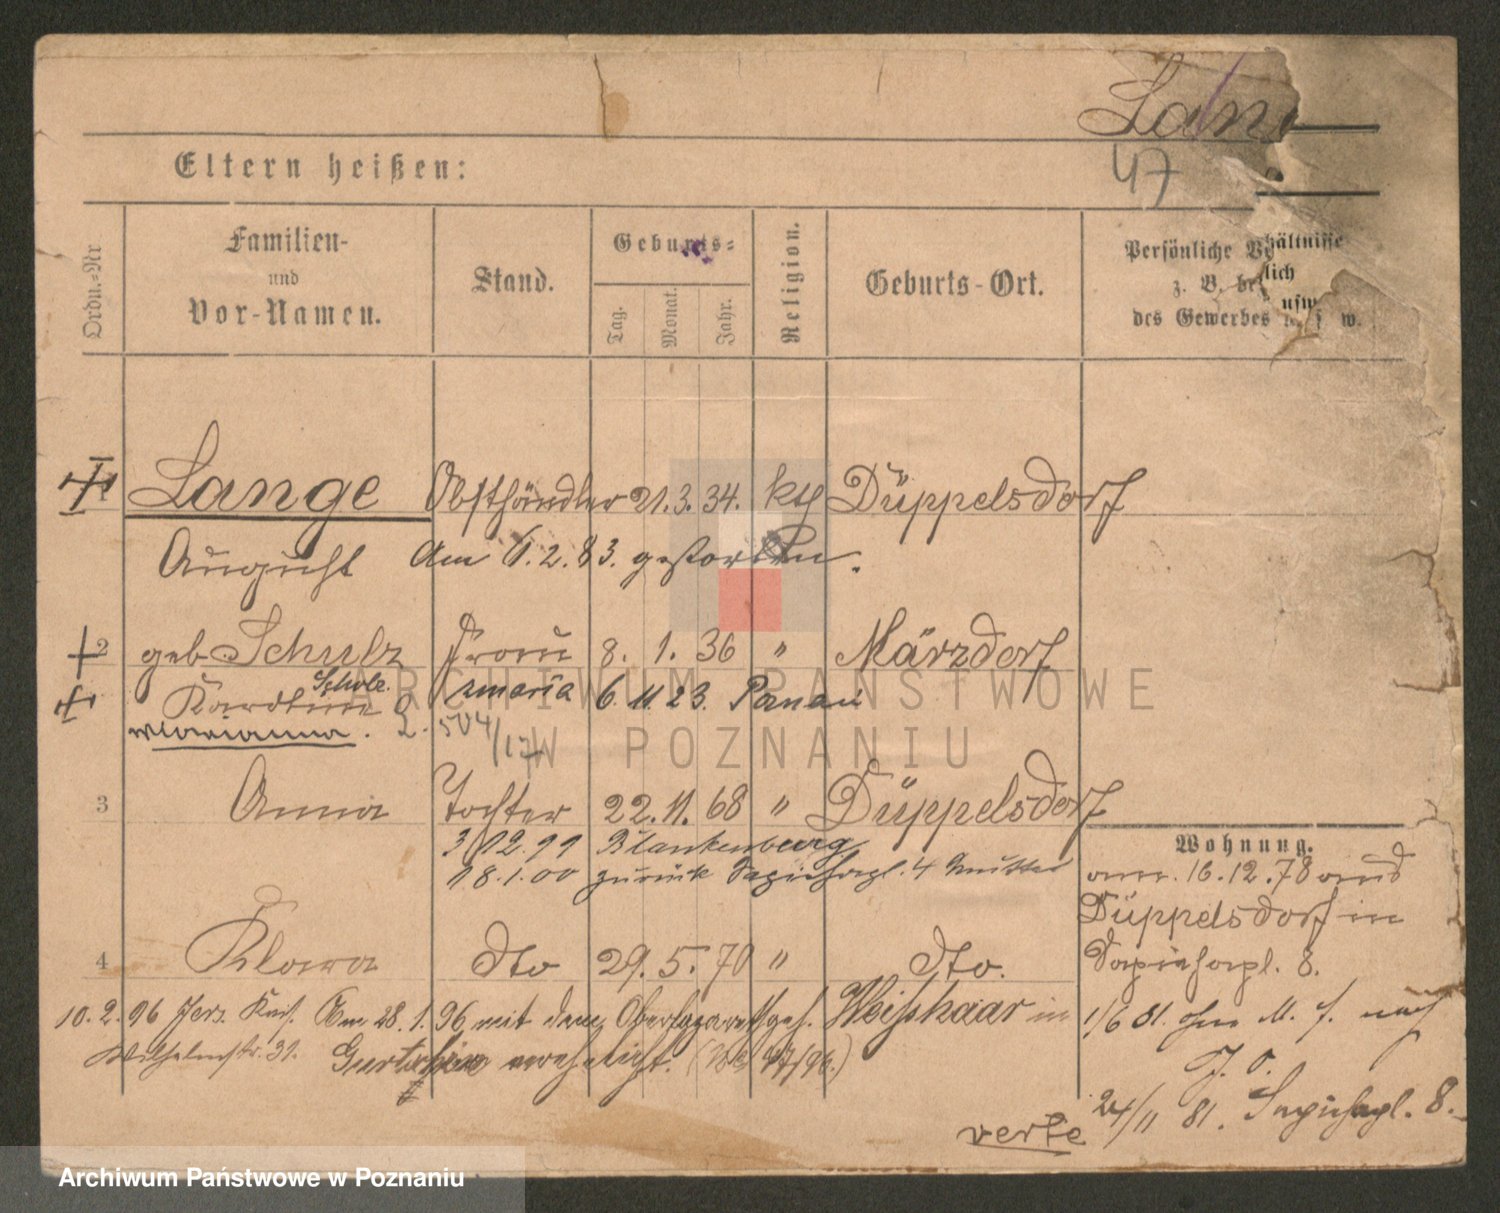 Lan
Eltern heißen:
47
Ordn.-Nr
Familien-
und
Vor-Namen.
Stand.
Geburts-
Tag.
Monat.
Jahr.
Religion.
Geburts-Ort.
Persönliche Verhältnisse
z. B.
des Gewerbes usw.
Lange Obsthändler 21. 3. 34. kth Düppelsdorf
August Am 6. 2. 83. gestorben.
2 geb Schulz Frau 8. 1. 36 " Märzdorf
Scholz.
maria 6. 11. 23. Posnań
Marianna. 2. 504/17
3 Anna Tochter 22. 11. 68 " Düppelsdorf
3/12. 99 Blankenburg
18. 1. 00 zurück Sapiehapl. 4 Mutter
4 Klara dto 29. 5. 70 " dto.
10. 2. 96 Jers. Am 28. 1. 96 mit dem Oberlazarettgeh. Weisshaar in
Wilhelmstr. 31. verehelicht. (47/96.)
Wohnung.
am. 16. 12. 78 aus
Düppelsdorf in
Sapiehapl. 8.
1/6 81. ohne M. f. nach
J. O.
24/11 81. Sapiehapl. 8.
verte
ARCHIWUM PAŃSTWOWE
W POZNANIU
Archiwum Państwowe w Poznaniu